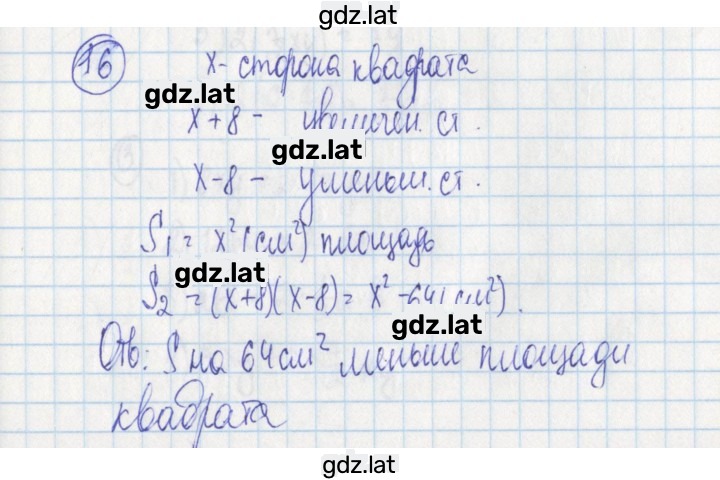 gdz.lat
16
x - сторона квадрата
gdz.lat
x + 8 - ст.
gdz.lat
x - 8 - уменьш. ст.
S₁ = x² (см²) площадь
gdz.lat
S₂ = (x+8)(x-8) = x² - 64 (см²).
gdz.lat
Отв: S на 64 см² меньше площади
квадрата
gdz.lat